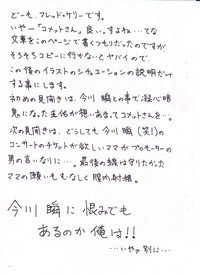 どーも、フレッド・ケリーです。
いやー「コメットさん」良い。するね…てな
文章をこのページで書くつもりだったのですが
そろそろコピーに行かないとヤバイので、
この後のイラストのシチュエーションの説明だけ
する事にします。
初めの見開きは、今川 瞬との事で疑心暗
鬼になった圭佑が想いあまってコメットさんを…。
次の見開きは、どうしても今川 瞬(笑)の
コンサートのチケットが欲しいママがプロモーター
の男の言いなりに…。最後の線は守りたかった
ママの願いもむなしく膣内射精。
今川 瞬に恨みでも
あるのか俺は!!
…いやッ 別に…